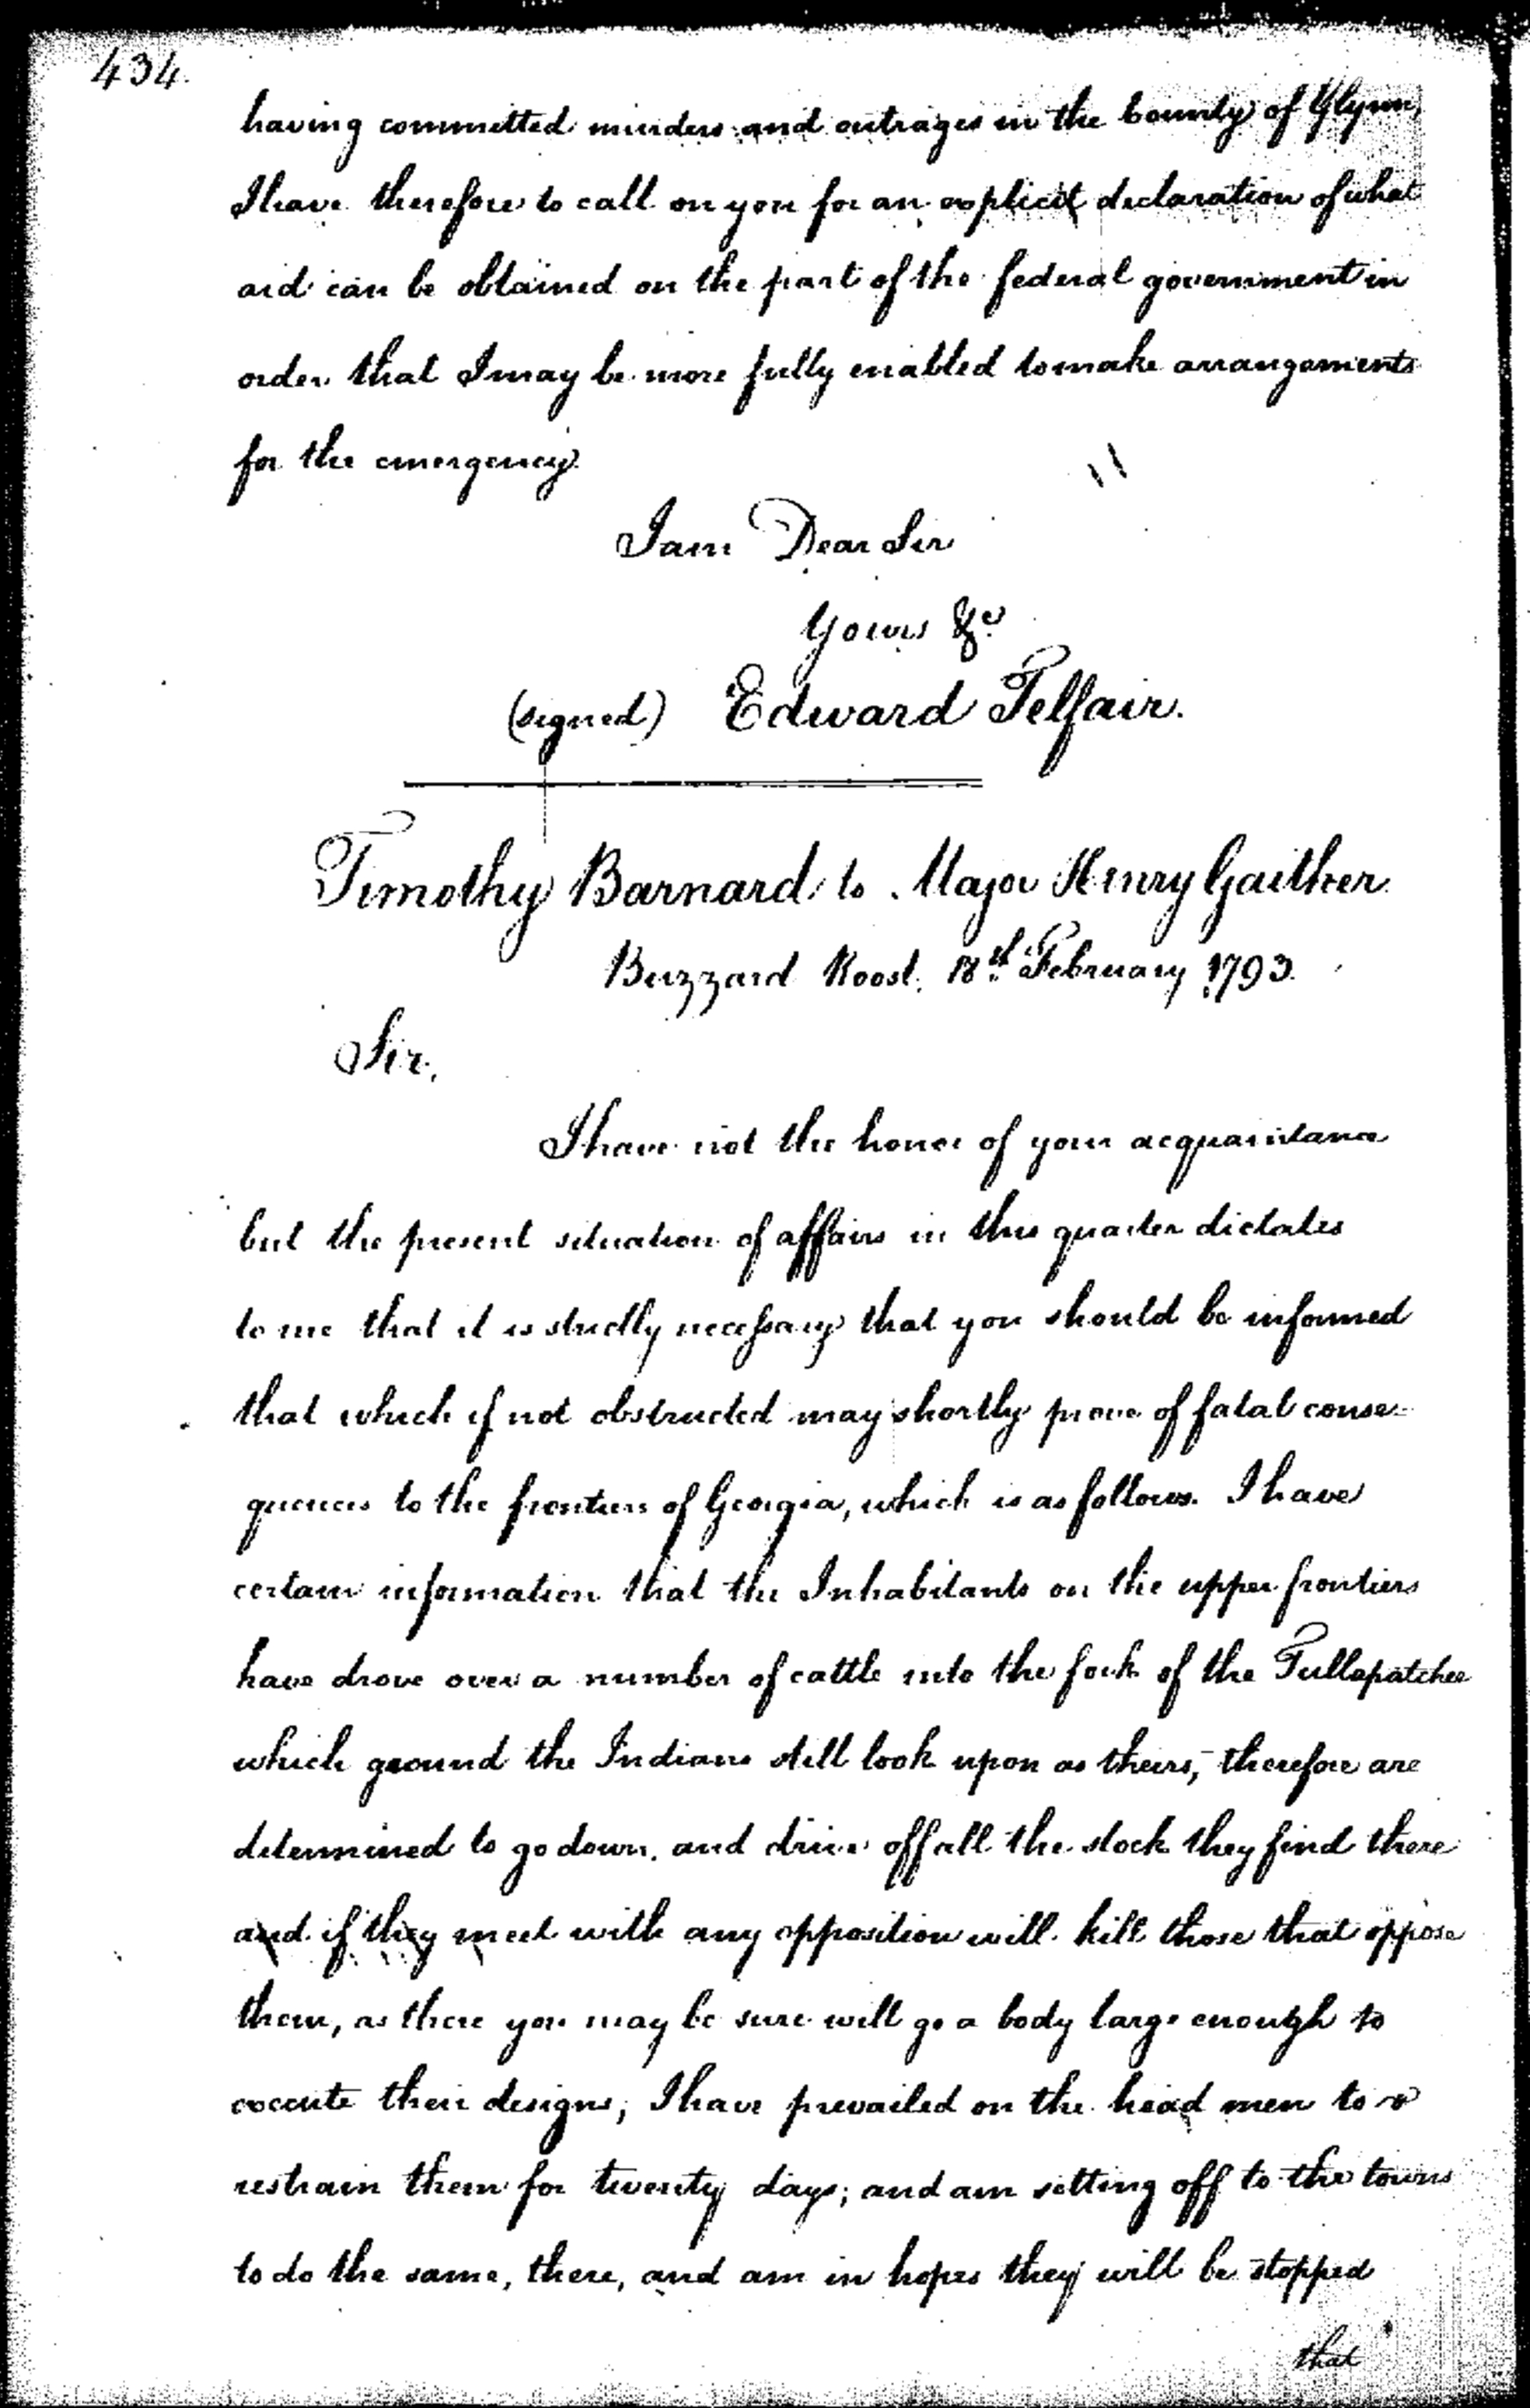 434.
having committed murders and outrages in the County of Glynn,
I have therefore to call on you for an explicit declaration of what
aid can be obtained on the part of the federal government in
order that I may be more fully enabled to make arrangements
for the emergency.
I am Dear Sir
Yours &c.
(signed) Edward Telfair.
Timothy Barnard to Major Henry Gaither.
Buzzard Roost, 18th February 1793.
Sir,
I have not the honor of your acquaintance
but the present situation of affairs in this quarter dictates
to me that it is strictly necessary that you should be informed
that which if not obstructed may shortly prove of fatal conse-
quences to the frontiers of Georgia, which is as follows. I have
certain information that the Inhabitants on the upper frontiers
have drove over a number of cattle into the fork of the Tullapatchee
which ground the Indians still look upon as theirs, therefore are
determined to go down, and drive off all the stock they find there
and if they meet with any opposition will kill those that oppose
them, as there you may be sure will go a body large enough to
execute their designs; I have prevailed on the head men to
restrain them for twenty days; and am setting off to the towns
to do the same, there, and am in hopes they will be stopped
that